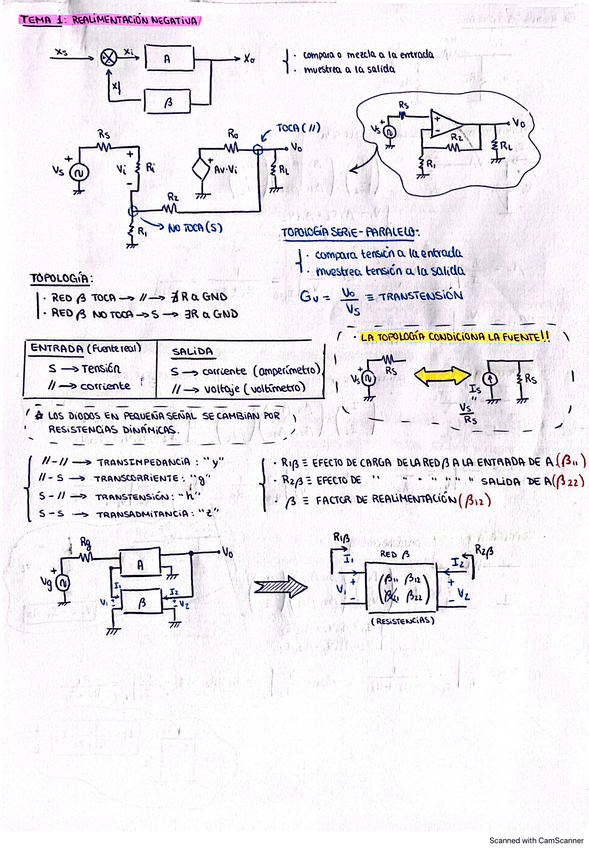 TEMA 1: REALIMENTACIÓN NEGATIVA
Xs Xi A Xo
Xf β
· compara o mezcla a la entrada
· muestrea a la salida
Rs Vs + - R2 R1 RL Vo
Rs Ro TOCA (//) Vo
Vs + Vi - Ri Av·Vi RL
R2
R1 NO TOCA (S)
TOPOLOGÍA SERIE-PARALELO:
· compara tensión a la entrada
· muestrea tensión a la salida
Gv = Vo/Vs ≡ TRANSTENSIÓN
TOPOLOGÍA:
· RED β TOCA → // → ∄ R a GND
· RED β NO TOCA → S → ∃R a GND
· LA TOPOLOGÍA CONDICIONA LA FUENTE!!
Vs Rs Is Rs
"
Vs/Rs
ENTRADA (Fuente real)
S → Tensión
// → corriente
SALIDA
S → corriente (amperímetro)
// → voltaje (voltímetro)
☆ LOS DIODOS EN PEQUEÑA SEÑAL SE CAMBIAN POR
RESISTENCIAS DINÁMICAS.
//-// → TRANSIMPEDANCIA: "y"
//-S → TRANSCORRIENTE: "g"
S-// → TRANSTENSIÓN: "h"
S-S → TRANSADMITANCIA: "z"
· R1β ≡ EFECTO DE CARGA DE LA RED β A LA ENTRADA DE A (β11)
· R2β ≡ EFECTO DE " " " " " " SALIDA DE A (β22)
· β ≡ FACTOR DE REALIMENTACIÓN (β12)
Rg A Vo
Vg + I1 I2
V1 + - β + - V2
R1β RED β R2β
I1 I2
V1 + - (β11 β12 β21 β22) + - V2
(RESISTENCIAS)
Scanned with CamScanner